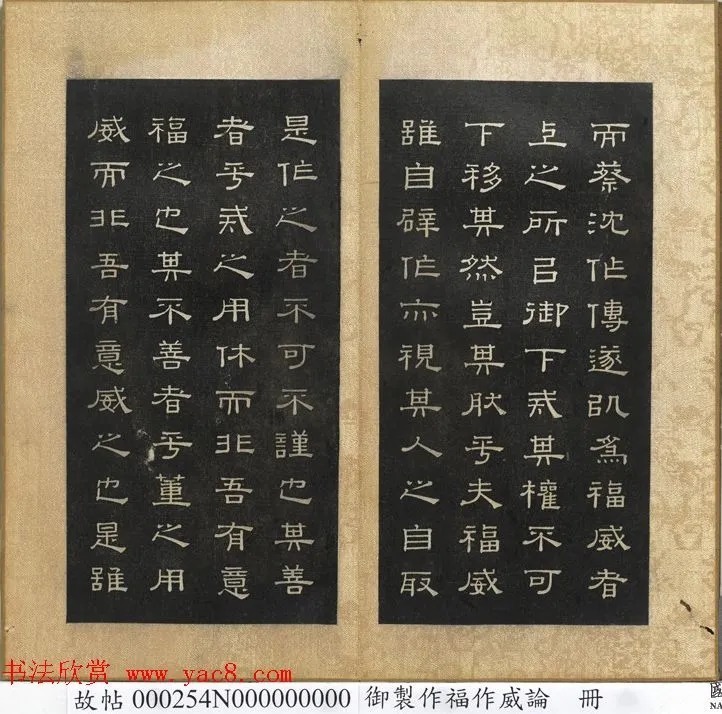 而蔡沈作傳遂為福威者
上之所㠯御下戒其權不可
下移其然豈其肰乎夫福威
雖自辟作亦視其人之自取
是作之者不可不謹也其善
者乎戒之用休而非吾有意
福之也其不善者乎董之用
威而非吾有意威之也是雖
书法欣赏 www.yac8.com
故帖 000254N000000000 御製作福作威論 冊